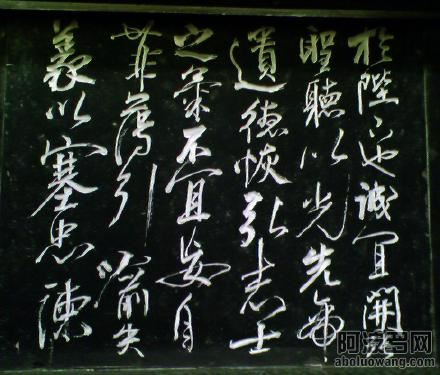 於陛下也誠宜開張
聖聽以光先帝
遺德恢弘志士
之氣不宜妄自
菲薄引喻失
義以塞忠諫
阿波罗网
aboluowang.com